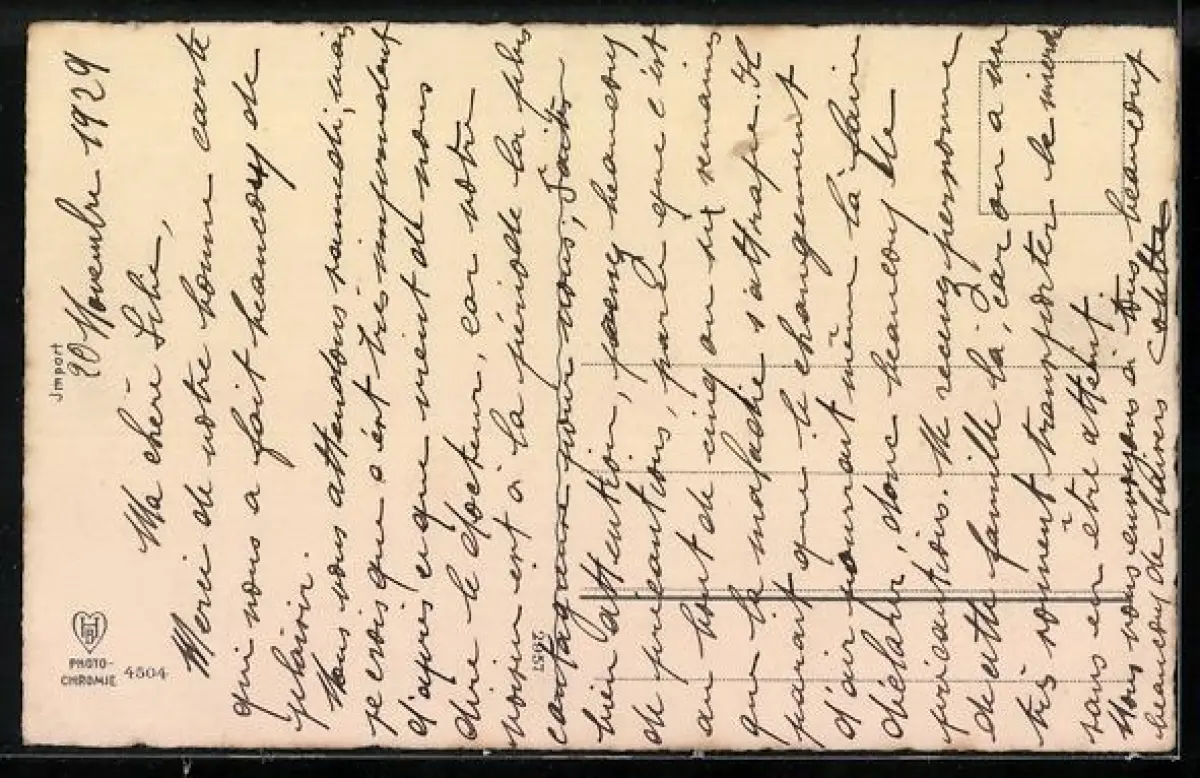 20 Novembre 1929
Ma chère Lili,
Merci de votre bonne carte
qui nous a fait beaucoup de
plaisir.
Nous vous attendons samedi, mais
je crois que c'est très imprudent
d'après ce que vient de nous
dire le docteur, car votre
voisin est à la période la plus
contagieuse pour vous, faites
bien attention, prenez beaucoup
de précautions, parce que c'est
au bout de cinq ou six semaines
que la maladie s'attrape. Il
parait que le changement
d'air pourrait même la faire
déclarer, donc beaucoup de
précautions. Ne recevez personne
de cette famille là, car on a vu
très souvent transporter le microbe
sans en être atteint.
Nous vous envoyons à tous beaucoup
beaucoup de baisers
Import
PHOTO-
CHROMIE 4504
2957